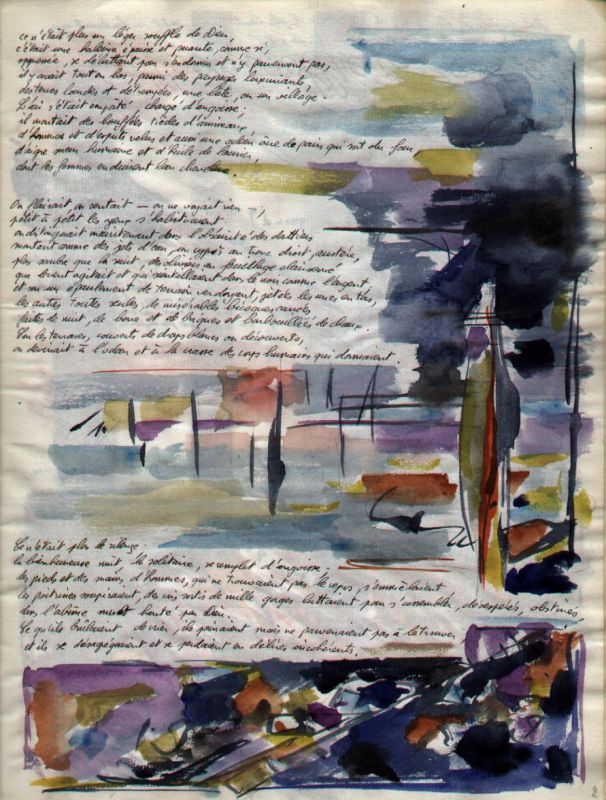 ce n'était plus un léger souffle de Dieu,
c'était une haleine épaisse et puante, comme si,
oppressée, se débattant pour s'endormir et n'y parvenant pas,
il y avait tout en bas, parmi des paysages luxuriants
des terres lourdes et détrempées, une bête, ou un village.
s'était empâté, chargé d'angoisse;
il montait des bouffées tièdes d'animaux,
d'hommes et d'esprits velus et aussi une odeur âcre de pain qui sort du four,
d'aigre sueur humaine et d'huile de laurier,
dont les femmes enduisent leur chevelure.
On flairait, on sentait — on ne voyait rien —,
petit à petit les yeux s'habituaient
on distinguait maintenant dans l'obscurité des dattiers
montant comme des jets d'eau, un cyprès au tronc droit, austère,
plus sombre que la nuit, des oliviers au feuillage clairsemé
que le vent agitait et qui scintillaient dans le noir comme l'argent,
et sur un épaulement de terrain verdoyant, jetées les unes en tas,
les autres toutes seules, de misérables bicoques carrées
faites de nuit, de boue et de briques et barbouillées de chaux.
Sur les terrasses, couverts de draps blancs ou découverts,
on devinait à l'odeur et à la crasse des corps humains qui dormaient
Ce n'était plus le silence.
la bienheureuse nuit, la solitaire, se remplit d'angoisse,
des pieds et des mains d'hommes, qui ne trouvaient pas le repos, s'emmêlaient
les poitrines soupiraient, des cris sortis de mille gorges luttaient pour s'assembler, désespérés, obstinés,
dans l'abîme muet hanté par Dieu
Ce qu'ils brûlaient de crier, ils peinaient mais ne parvenaient pas à le trouver,
et ils se désagrégeaient et se perdaient en délires incohérents.
2